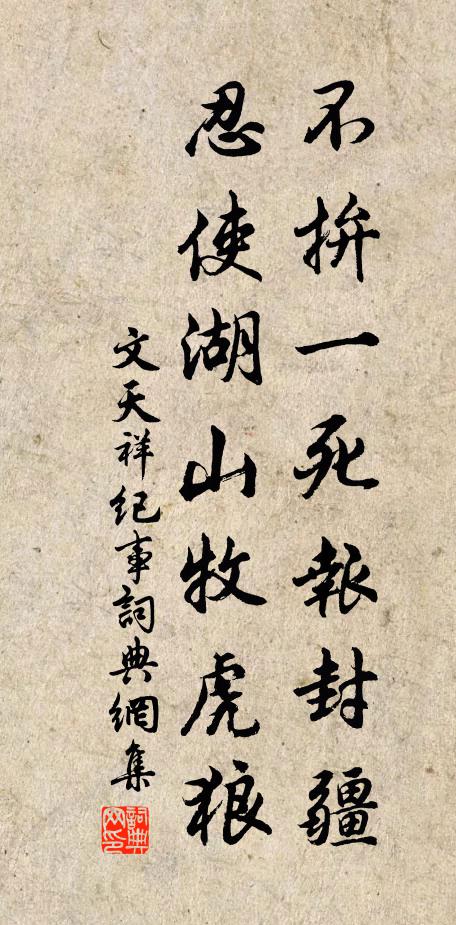 不拚一死報封疆
忍使湖山牧虎狼
文天祥紀事詞典網集
詞典網印